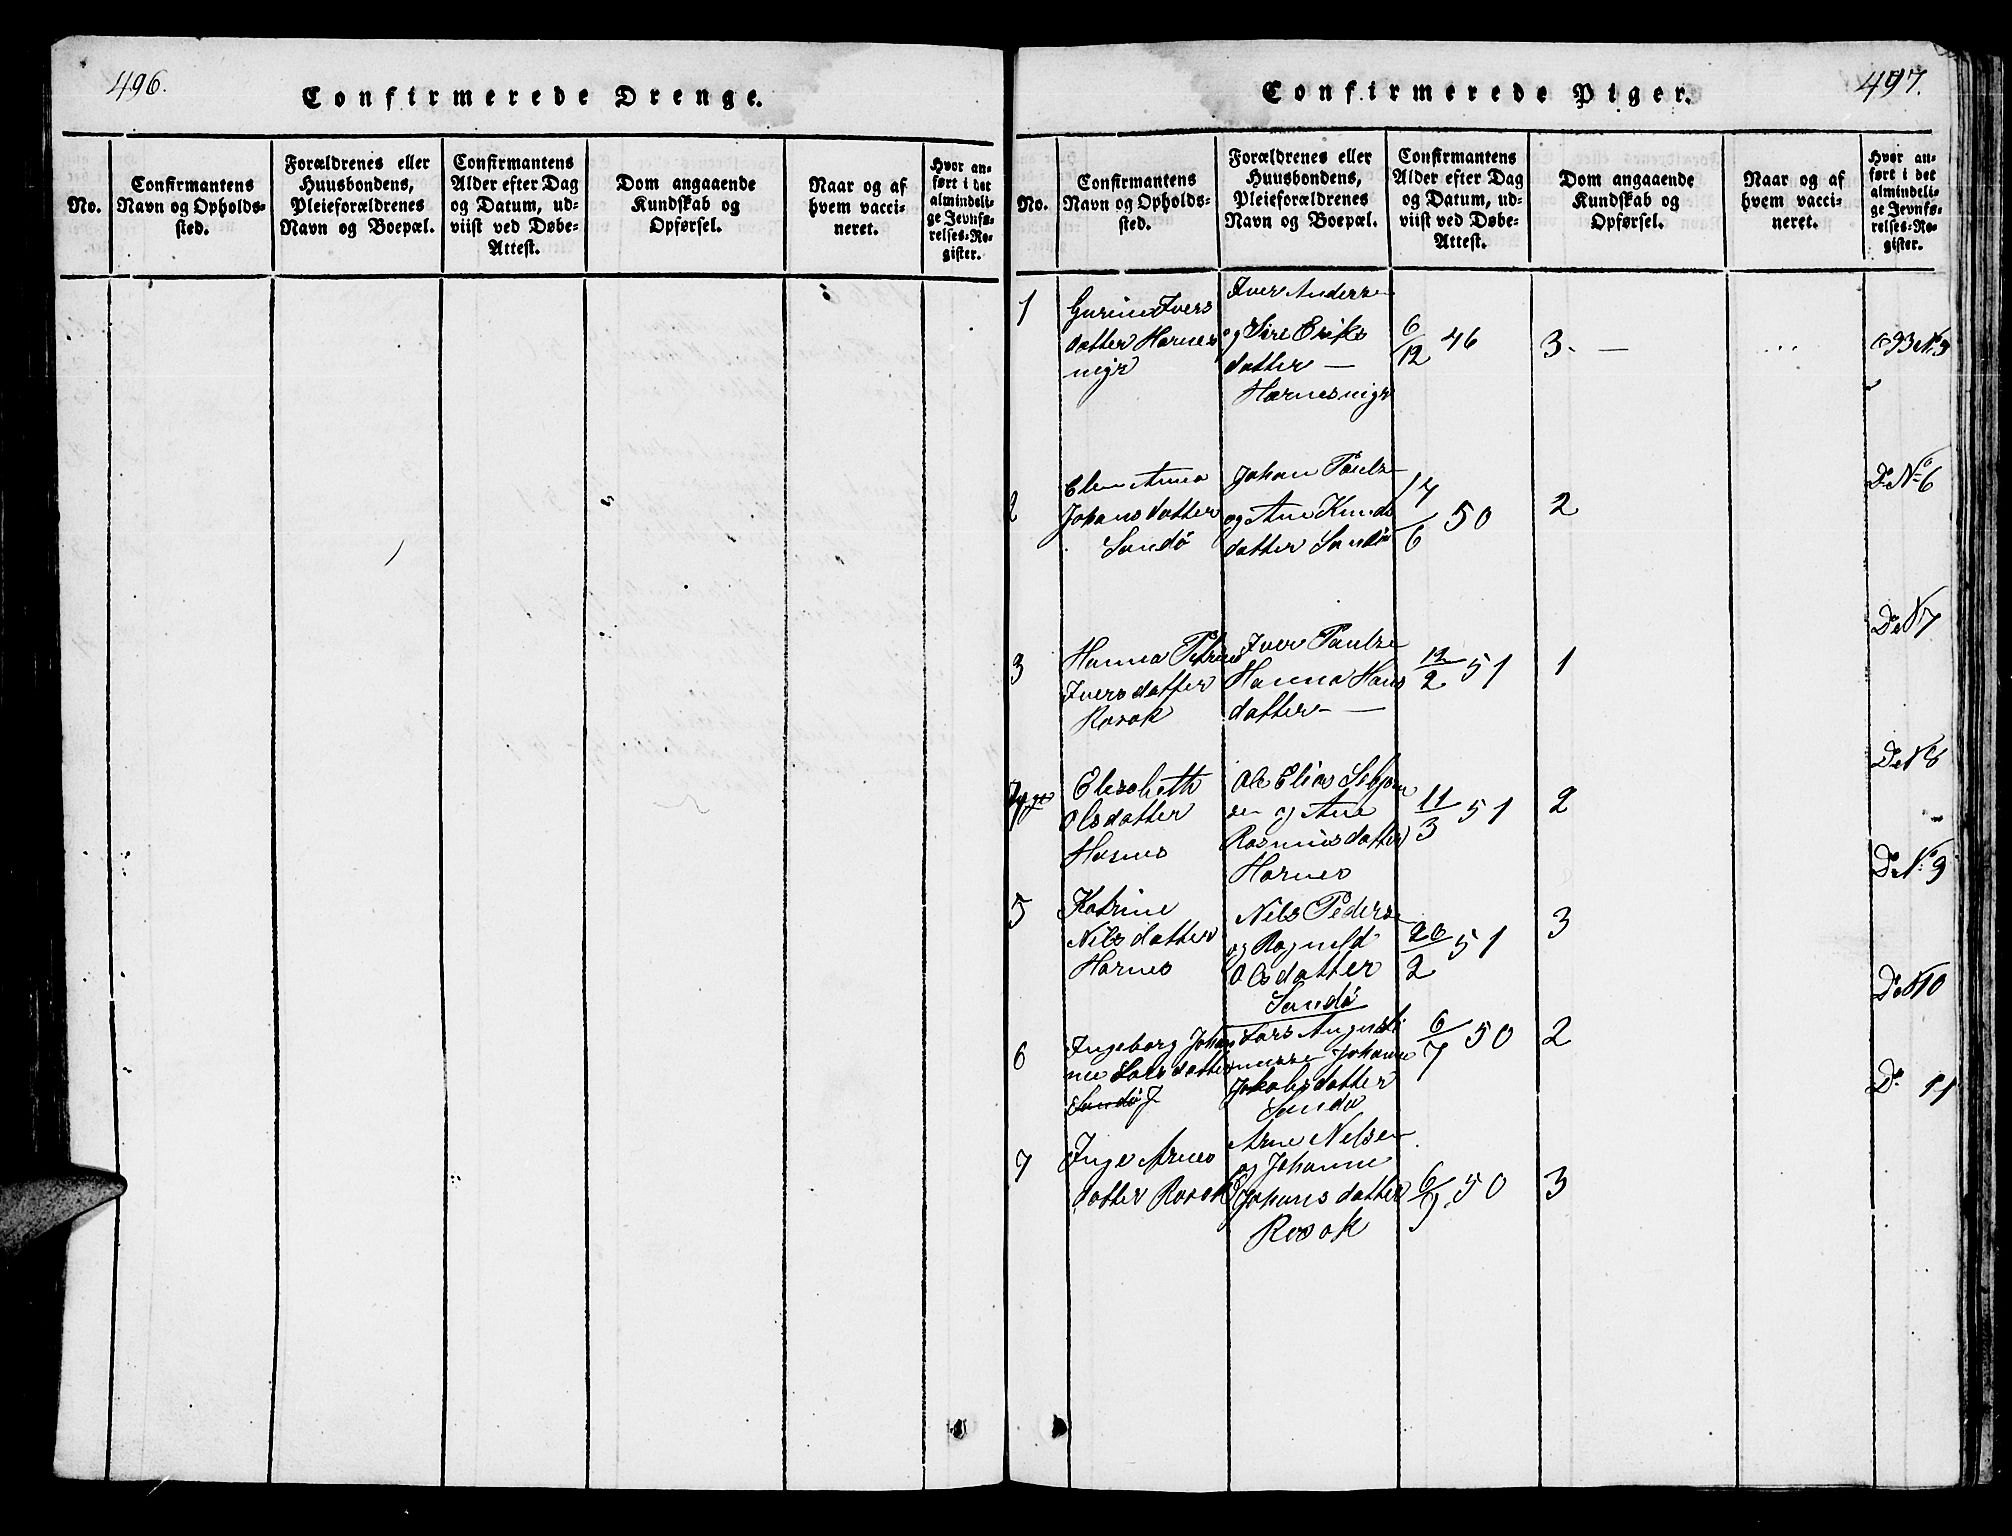 496.
Confirmerede Drenge.
No.
Confirmantens
Navn og Opholds-
sted.
Forældrenes eller
Huusbondens,
Pleieforældrenes
Navn og Boepæl.
Confirmantens
Alder efter Dag
og Datum, ud-
viist ved Døbe-
Attest.
Dom angaaende
Kundskab og
Opførsel.
Naar og af
hvem vacci-
neret.
Hvor an-
ført i det
almindeli-
ge Jevnfø-
relses-Re-
gister.
497.
Confirmerede Piger.
No.
Confirmantens
Navn og Opholds-
sted.
Forældrenes eller
Huusbondens,
Pleieforældrenes
Navn og Boepæl.
Confirmantens
Alder efter Dag
og Datum, ud-
viist ved Døbe-
Attest.
Dom angaaende
Kundskab og
Opførsel.
Naar og af
hvem vacci-
neret.
Hvor an-
ført i det
almindeli-
ge Jevnfø-
relses-Re-
gister.
1
Gurine Ivers
datter Harnes
Iver Anderse
og Siri Eriks
datter —
6/12 46
3. —
2
Elen Anna
Johansdatter
Sandø
Johan Paulse
og Ane Knuds
datter Sandø
17/6 50
2
Do No 6
3
Hanna Petrine
Iversdatter
Rosok
Iver Paulse
Hanna Hans
datter —
12/2 51
1
Do N 7
Elesabeth
Olsdatter
Harnes
Ole Elias Sebjørn
sen og Ane
Rasmusdatter
Harnes
11/3 51
2
Do N 8
5
Katrine
Nilsdatter
Harnes
Nels Pederse
og Ragneld
Olsdatter
Sandø
26/2 51
3
Do No 9
6
Ingeborg Johan
ne Larsdatter
Sandø
Lars Augusti
nusse Johanne
Jakobsdatter
Sandø
6/7 50
2
Do N 10
7
Inge Arnes
datter Rosok
Arne Nelsen
og Johanne
Johansdatter
Rosok
6/9 50
3
Do 11